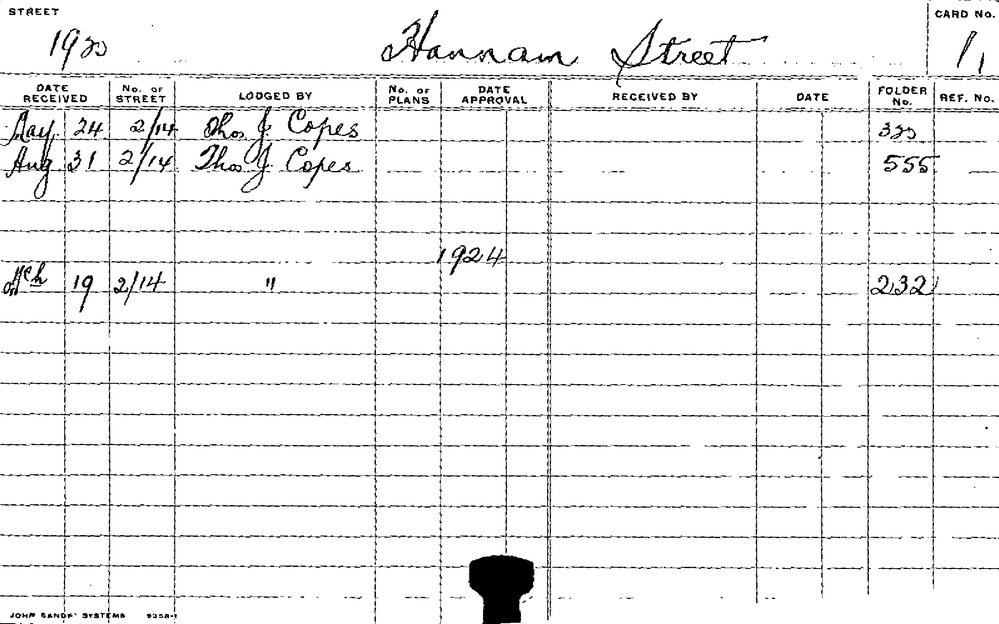 STREET
CARD No.
1920 Hannam Street 1,
DATE RECEIVED No. OF STREET LODGED BY No. OF PLANS DATE APPROVAL RECEIVED BY DATE FOLDER No. REF. No.
May 24 2/14 Thos J. Copes 320
Aug 31 2/14 Thos J. Copes 555
1924
Mch 19 2/14 " 232
JOHN SANDS' SYSTEMS